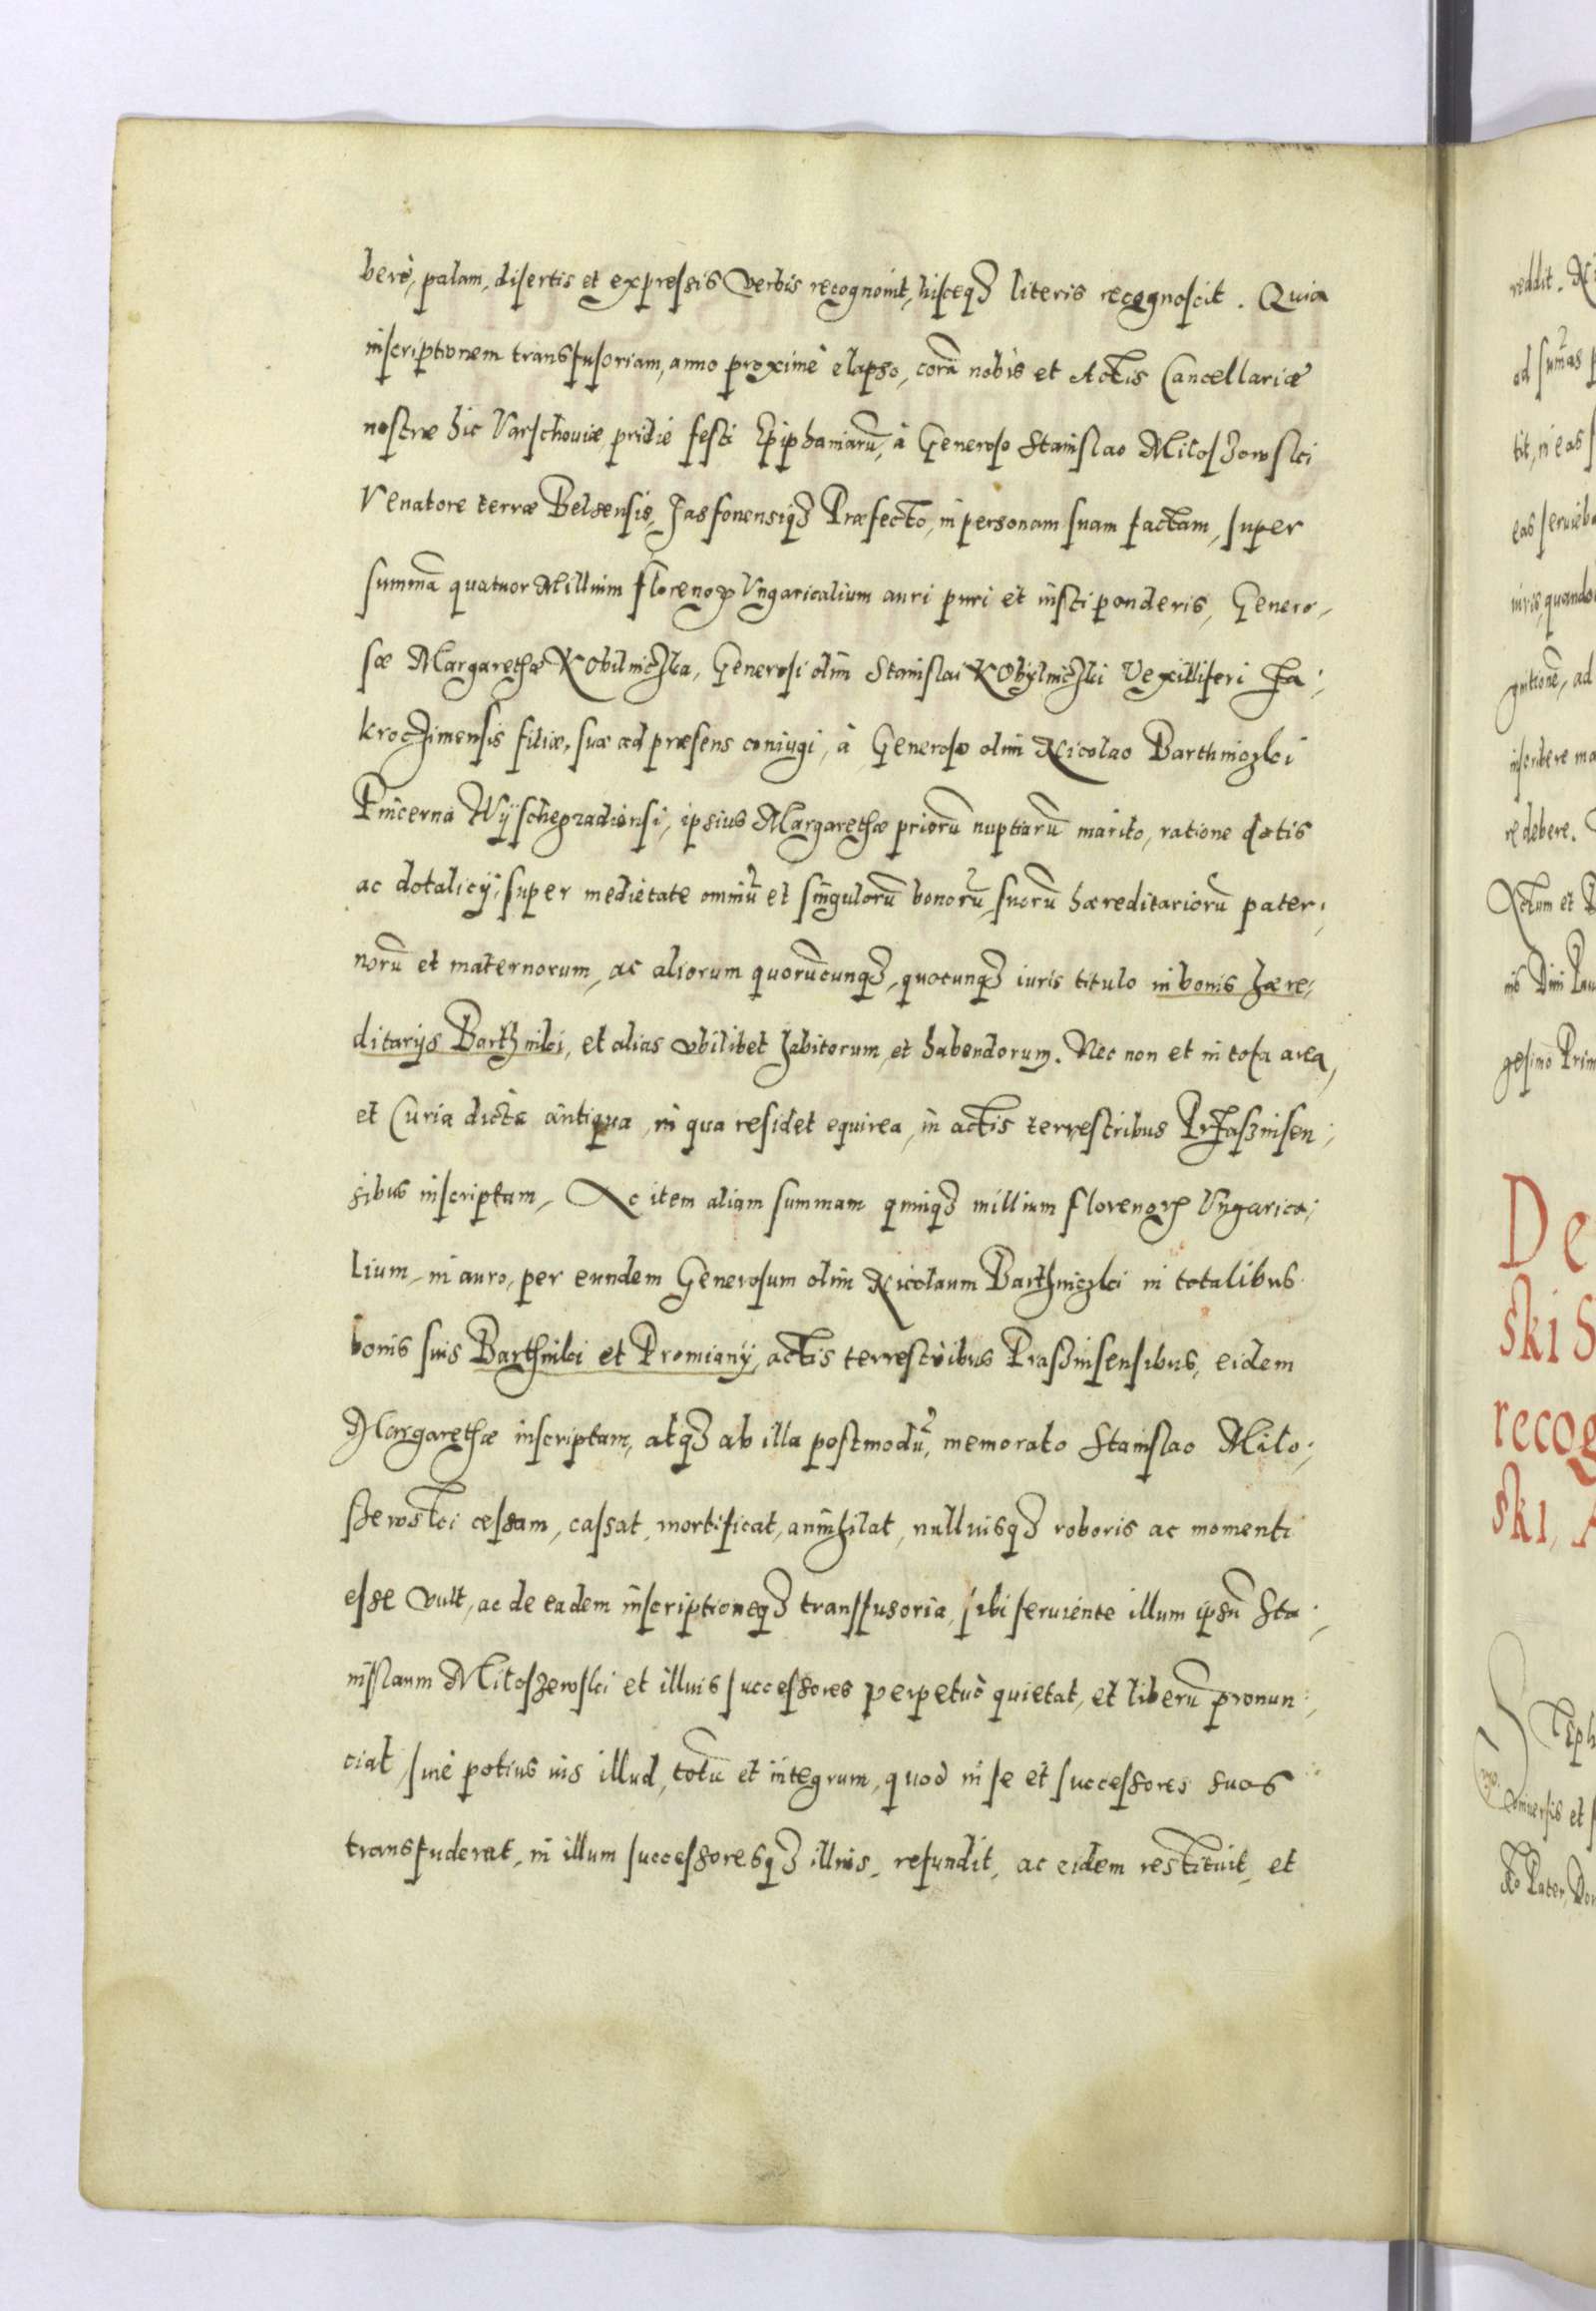 berè, palam, disertis et expressis verbis recognouit, hisceq3 literis recognoscit. Quia
inscriptionem transfusoriam, anno proximè elapso, corā nobis et Actis Cancellariæ
nostræ hic Varschouiæ pridie festi Epiphaniarū, à Generoso Stanislao Miloszowski
Venatore terræ Belzensis, Præfecto, in personam suam factam, super
summā quatuor Millium florenoꝝ Vngaricalium auri puri et iusti ponderis, Genero-
sæ Margarethæ Kobilniczka, Generosi olim Stanislai Kobylniczki Vexilliferi Za-
kroczimensis filiæ, suæ ad præsens coniugi, à Generoso olim Nicolao Barthniczki
Pincerna Wÿschegradiensi, ipsius Margarethæ priorū nuptiarū marito, ratione dotis
ac dotalicÿ, super medietate omniū et singulorū bonorū suorū hæreditariorū pater-
norū et maternorum, ac aliorum quorūcunq3, quocunq3 iuris titulo in bonis hære-
ditarijs Barthniki, et alias vbilibet habitorum, et habendorum. Nec non et in tota area,
et Curia dicta antiqua, in qua residet equirea, in actis terrestribus Przasznisen-
sibus inscriptam, Ac item aliam summam quinq3 millium florenoꝝ Vngarica-
lium, in auro, per eundem Generosum olim Nicolaum Barthniczki in totalibus
bonis suis Barthniki et Promianÿ, actis terrestribus Prasznisensibus, eidem
Margarethæ inscriptam, atq3 ab illa postmodū, memorato Stanislao Milo-
szewski cessam, cassat, mortificat, annihilat, nulliusq3 roboris ac momenti
esse vult, ac de eadem inscriptioneq3 transfusoria, sibi seruiente illum ipsū Sta-
nislaum Miloszewski et illius successores perpetuò quietat, et liberū pronun-
ciat, siue potius ius illud, totū et integrum, quod in se et successores suos
transfuderat, in illum successoresq3 illius, refundit, ac eidem restituit, et